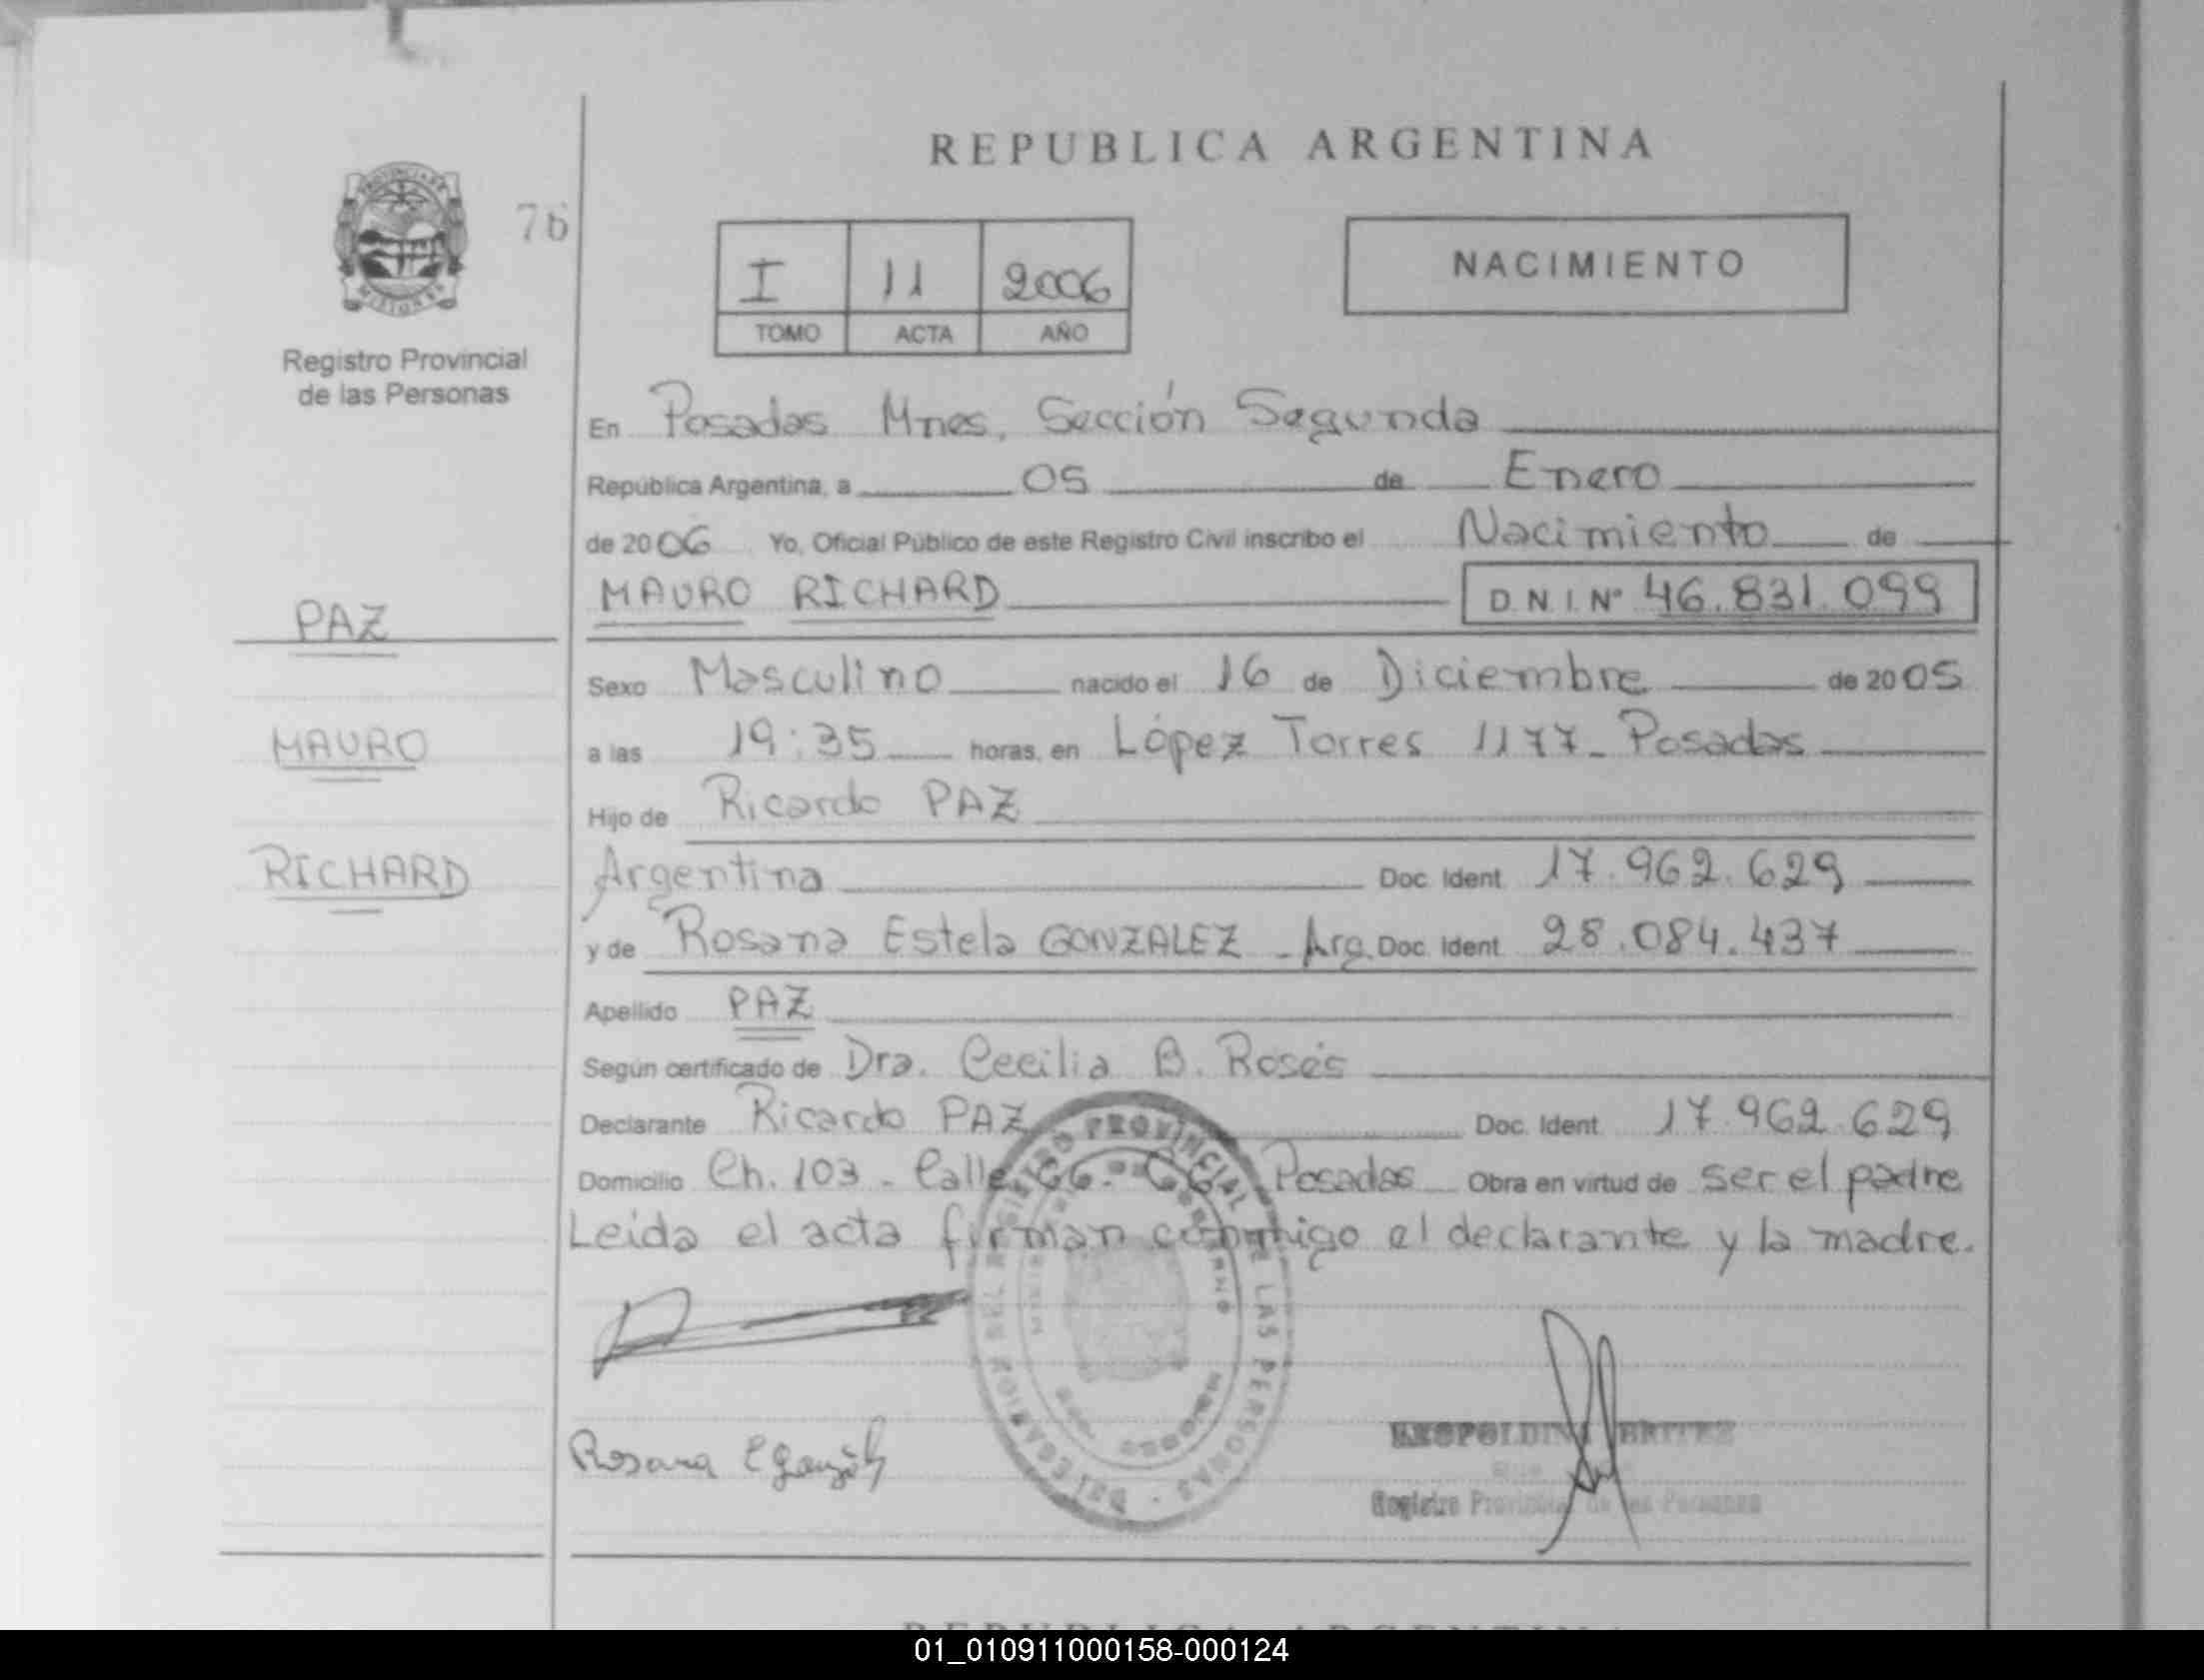 REPUBLICA ARGENTINA
PROVINCIA DE
MISIONES
76
I 11 2006
TOMO ACTA AÑO
NACIMIENTO
Registro Provincial
de las Personas
En Posadas Mnes, Sección Segunda
República Argentina, a 05 de Enero
de 2006 Yo, Oficial Público de este Registro Civil inscribo el Nacimiento de
MAURO RICHARD D.N.I. Nº 46.831.099
PAZ
Sexo Masculino nacido el 16 de Diciembre de 2005
MAURO
a las 19:35 horas, en López Torres 1177- Posadas
Hijo de Ricardo PAZ
RICHARD
Argentina Doc. Ident. 17.962.629
y de Rosana Estela GONZALEZ - Arg. Doc. Ident. 28.084.437
Apellido PAZ
Según certificado de Dra. Cecilia B. Rosés
Declarante Ricardo PAZ Doc. Ident. 17.962.629
Domicilio Ch. 103 - Calle Posadas Obra en virtud de ser el padre
Leida el acta firman conmigo el declarante y la madre.
REGISTRO PROVINCIAL DE LAS PERSONAS
MISIONES
Rosana E González
LEOPOLDINA BRITEZ
Registro Provincial de las Personas
REPUBLICA ARGENTINA
01_010911000158-000124